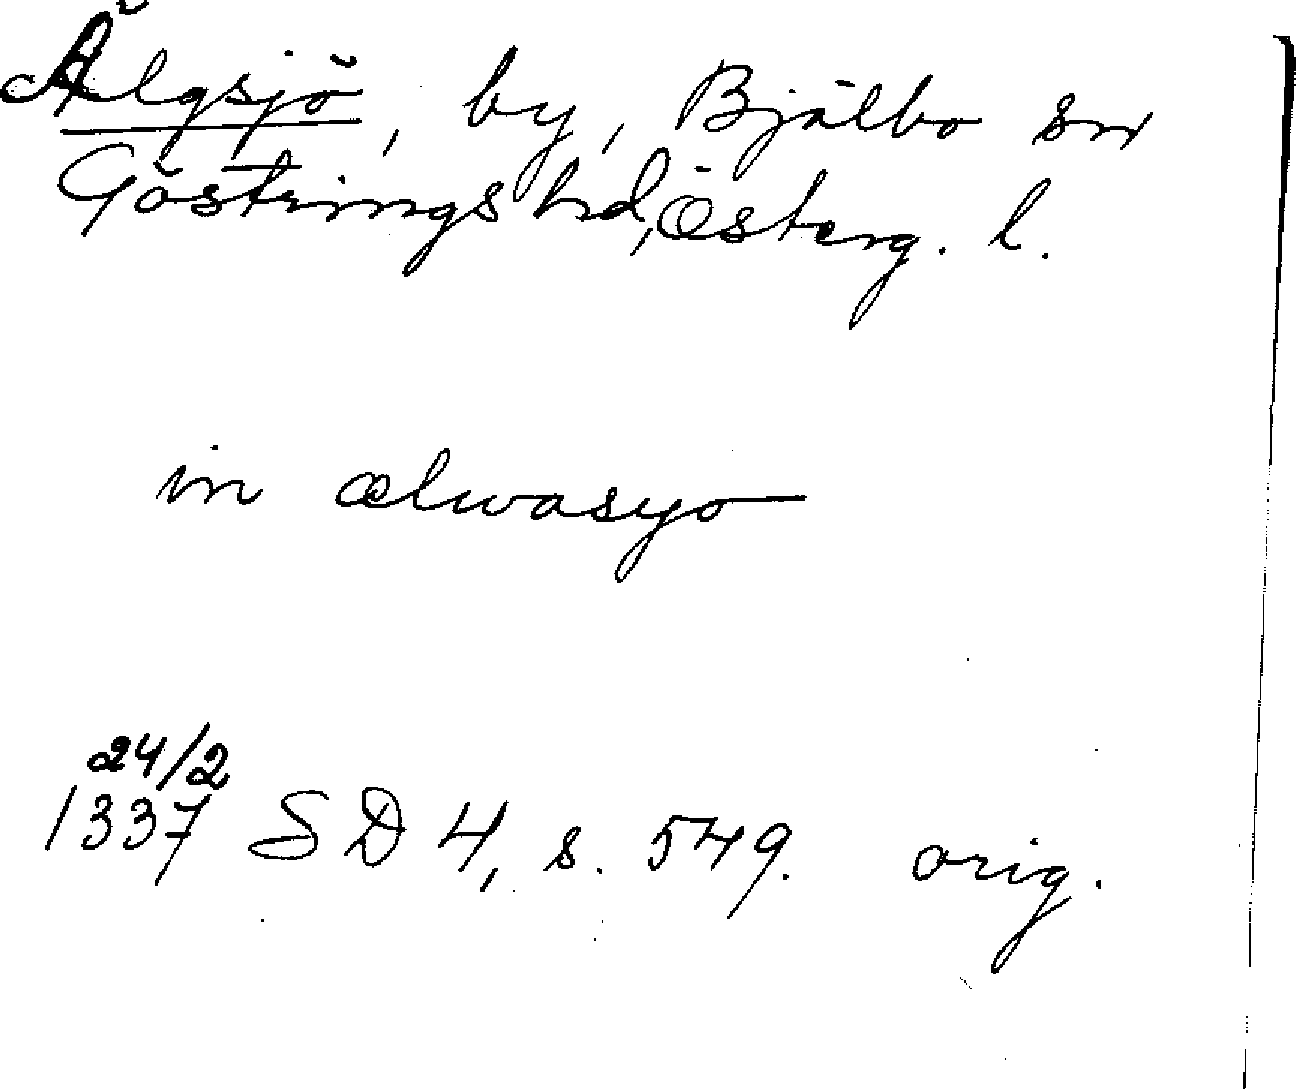 Älgsjö, by, Bjälbo sn
Göstrings hd, Österg. l.
in ælwasyo
24/2
1337 SD 4, s. 549. orig.